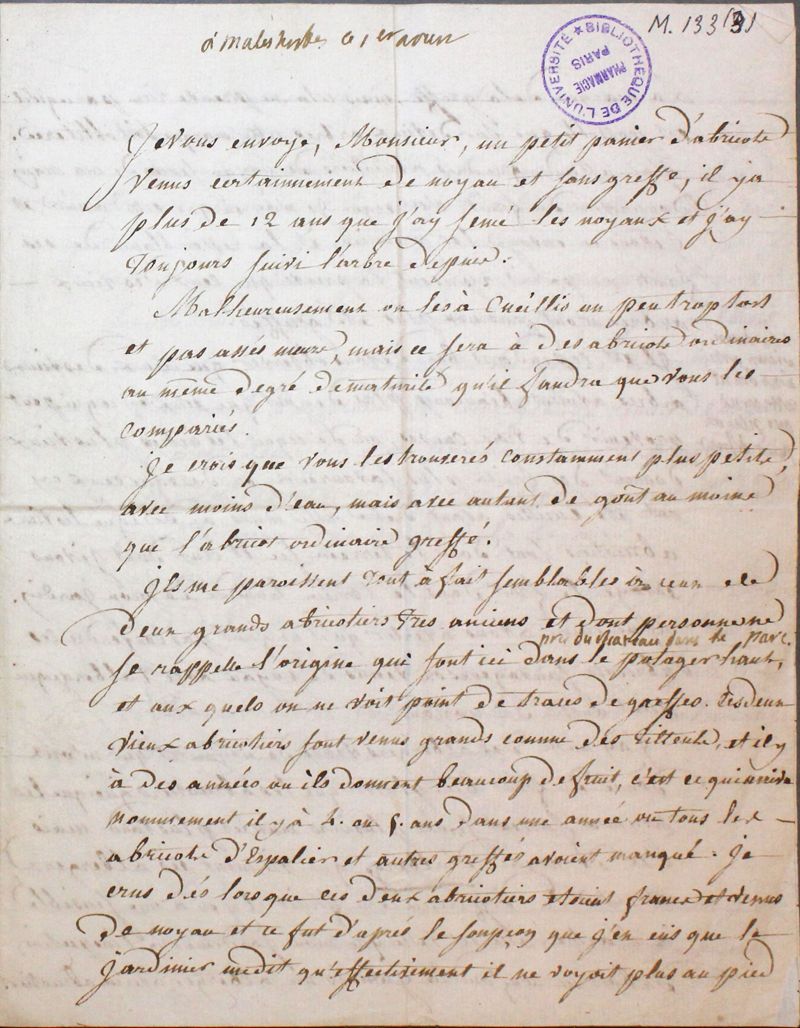 M. 133 (3)
BIBLIOTHÈQUE DE L'UNIVERSITÉ
PHARMACIE
PARIS
à Malesherbes ce 1er aoust
Je vous envoye, Monsieur, un petit panier d'abricots
venus certainnement de noyau et sans greffe, il y a
plus de 12 ans que j'ay semé les noyaux et j'ay
toujours suivi l'arbre depuis.
Malheureusement on les à cueillis un peu trop tost
et pas assés meurs, mais ce sera à des abricots ordinaires
au même degré de maturité qu'il faudra que vous les
compariés.
Je crois que vous les trouverés constamment plus petits,
avec moins d'eau, mais avec autant de goût au moins
que l'abricot ordinaire greffé.
Ils me paroissent tout à fait semblables à ceux de
deux grands abricotiers tres anciens et dont personne ne
près du chateau dans le parc.
se rappelle l'origine qui sont ici dans le potager haut,
et aux quels on ne voit point de traces de greffes. Ces deux
vieux abricotiers sont venus grands comme des tilleuls, et il y
à des années ou ils donnent beaucoup de fruit, c'est ce qui arriva
nommement il y à 4. ou 5. ans dans une année ou tous les
abricots d'Espalier et autres greffés avoient manqué. Je
crus dés lors que ces deux abricotiers etoient francs et venus
de noyau et ce fut d'après le soupçon que j'en eüs que le
jardinier me dit qu'effectivement il ne voyoit plus au pied